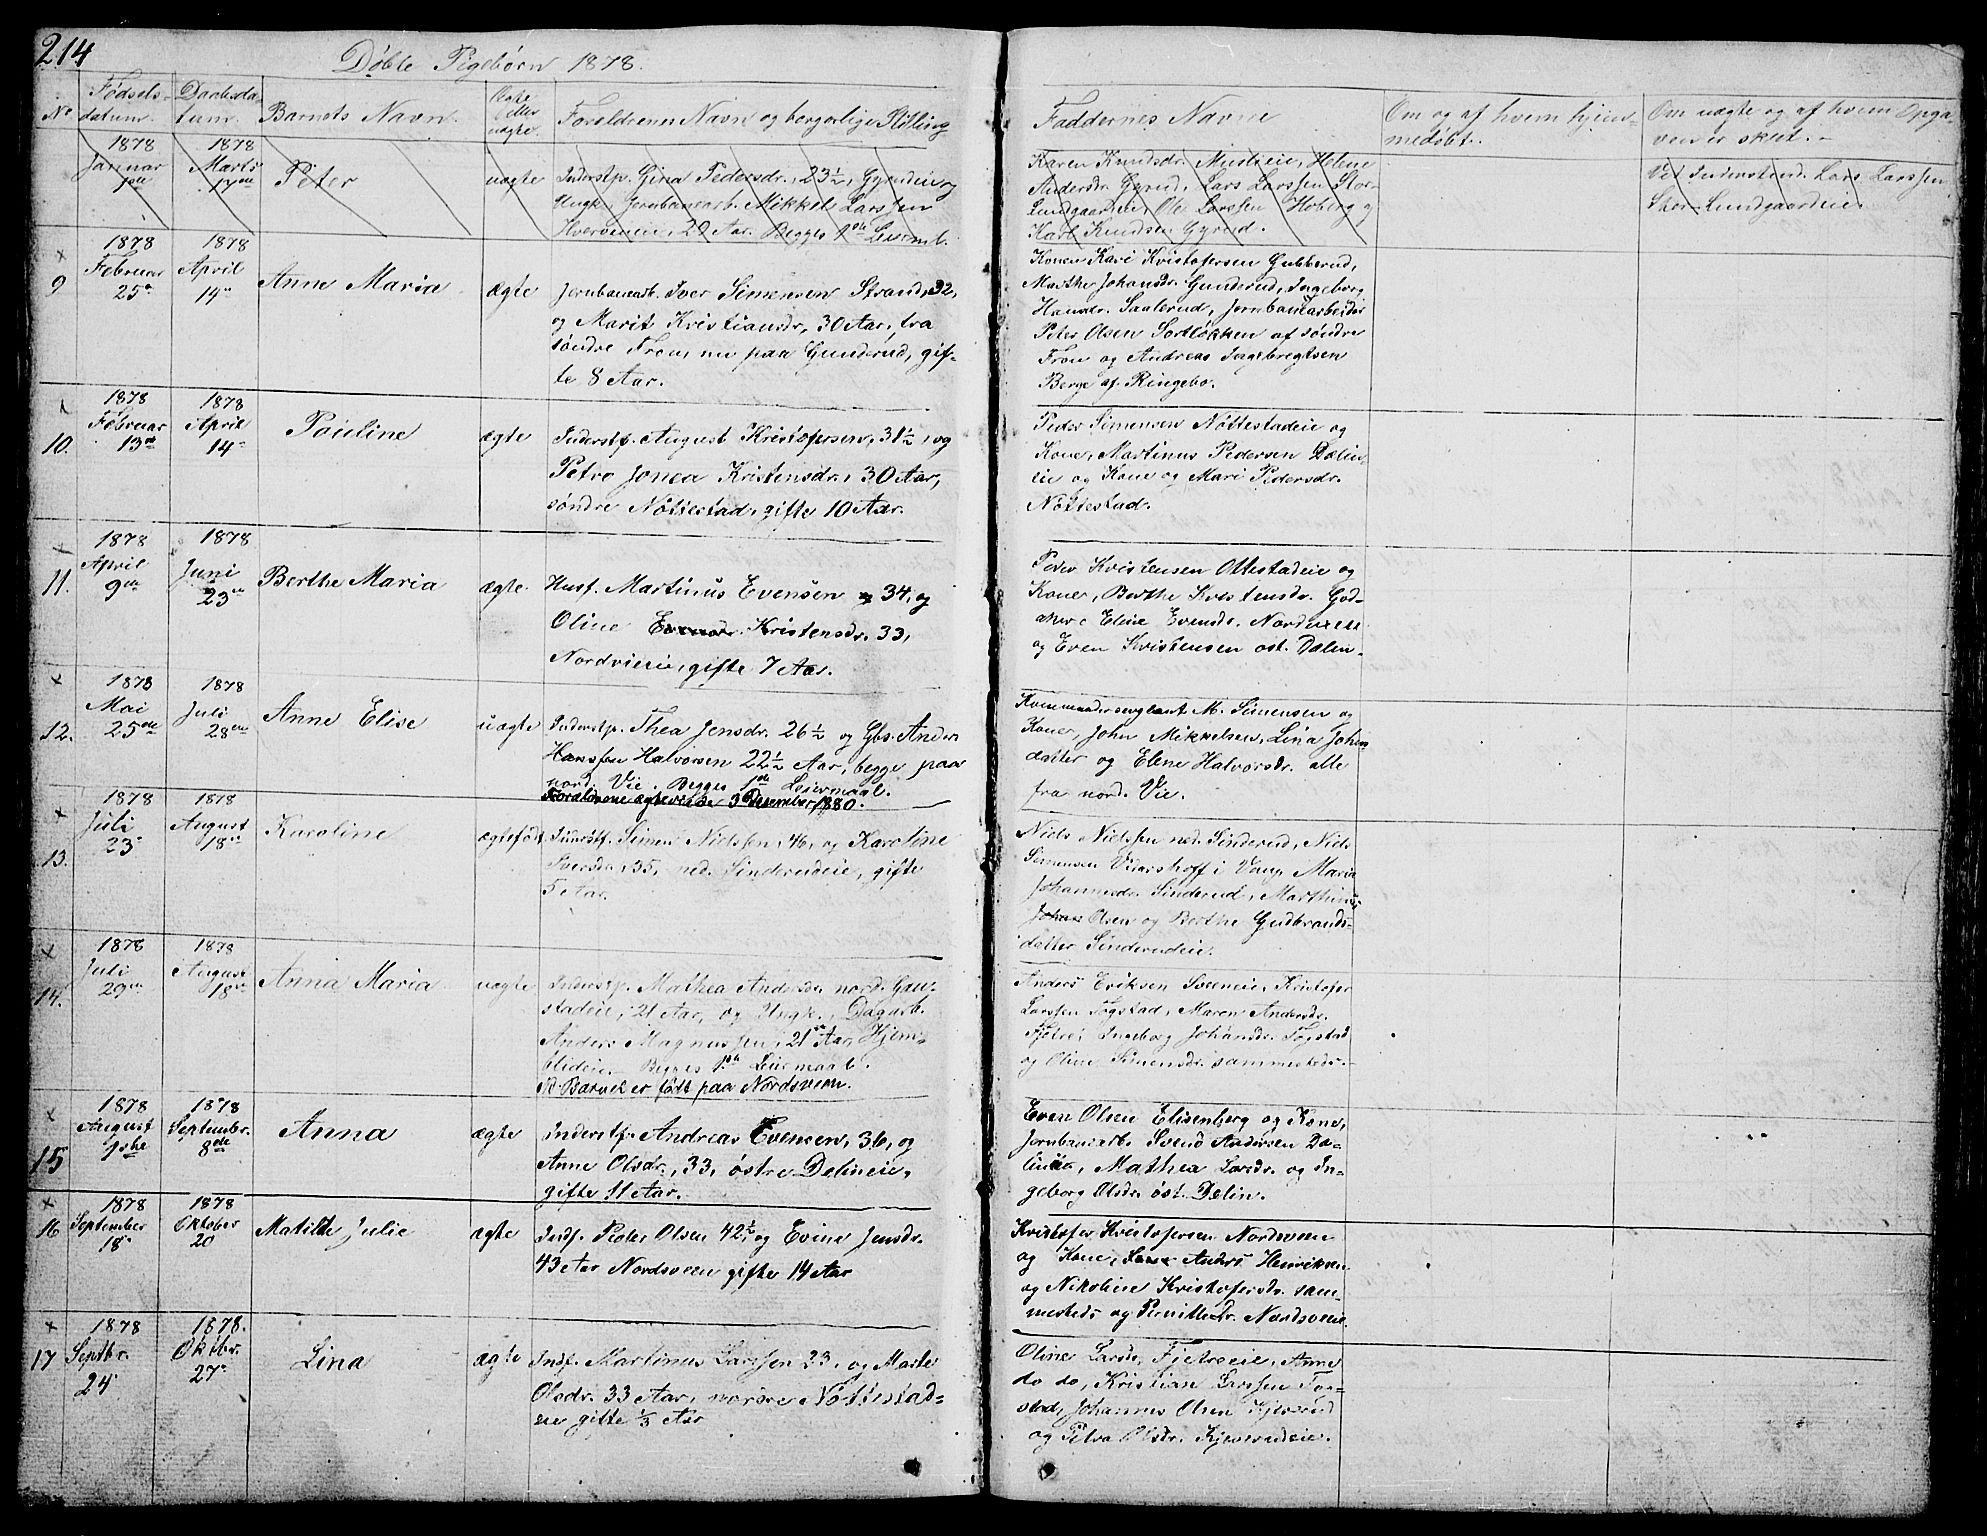 214
Døbte Pigebørn 1878.
No
Fødsels-
datum.
Daabsda-
tum.
Barnets Navn.
Ægte
eller
uægte.
Forældrenes Navn og borgerlige Stilling
Faddernes Navne
Om og af hvem hjem-
medøbt.
Om uægte og af hvem Opga-
ven er skeet. -
1878
Januar
1878
Marts
17de
Peter
uægte
Inderstp. Gina Pedersdr., 23 1/2, Gyrudeie og
Ungk., Jernbanearb. Mikkel Larssen
29 Aar. Begges 1ste Leierm.
Karen Knudsdr. Helene
Andersdr. Gyrud, Lars Larssen Stor-
Lundgaardeie, Ole Larssen Hoberg og
Karl Knudsen Gyrud.
Ved Inderstemd. Lars Larssen
Stor-Lundgaardeie.
×
9
1878
Februar
25de
1878
April
14de
Anne Maria
ægte
Jernbanearb. Iver Simensen Strand, 32,
og Marit Kristiansdr, 30 Aar, fra
søndre Fron, nu paa Gunderud, gif-
te 8 Aar.
Konen Kari Kristofersen Gubberud,
Marthe Johansdr. Gunderud, Ingeborg
Hansdr. Saalerud, Jernbanearbeider
Peter Olsen Sortløkken af søndre
Fron og Andreas Ingebregtsen
Berge af Ringebo.
×
10.
1878
Februar
13de
1878
April
14de
Pauline
ægte
Inderstf. August Kristofersen, 31 1/2, og
Petro Jonea Kristensdr., 30 Aar,
søndre Nøttestad, gifte 10 Aar.
Peder Simensen Nøttestadeie og
Kone, Martinus Pedersen Dælin-
eie og Kone og Mari Pedersdr.
Nøttestad.
×
11.
1878
April
9de
1878
Juni
23de
Berthe Maria
ægte.
Husf. Martinus Evensen 34, og
Oline Evensdr. Kristensdr. 33,
Nordvieeie, gifte 7 Aar.
Peder Kristensen Ottestadeie og
Kone, Berthe Kristensdr. God-
aker Eline Evensdr. Nordvieeie
og Even Kristensen øst. Dælin-
×
12.
1878
Mai
25de
1878
Juli
28de
Anne Elise
uægte
Inderstp. Thea Jensdr. 26 1/2 og Gbs. Anders
Hanssen Halvorsen 22 1/2 Aar, begge paa
nord. Vie. Begges 1ste Leiermaal.
Forældrene ægteviede 3 Desember 1880.
Kommandersergeant M. Simensen og
Kone, John Mikkelsen, Lina Johns
datter og Elene Halvorsdr. alle
fra nord. Vie.
×
13.
1878
Juli
23de
1878
August
18de
Karoline
ægtefødt
Inderstf. Simen Nielssen, 46, og Karoline
Iversdr. 35, ned. Sinderudeie, gifte
5 Aar.
Niels Nielssen ned. Sinderud, Niels
Simensen Vidarshoff i Vang, Maria
Johannesdr. Sinderud, Marthinus
Johans Olsen og Berthe Gudbrands-
datter Sinderudeie.
×
14.
1878
Juli
29de
1878
August
18de
Anna Maria
uægte
Inderstp. Mathea Andersdr. nord. Gau-
stadeie, 21 Aar, og Ungk., Dagarb.
Anders Magnussen, 21 Aar, Hjem-
- Begges 1ste Leiermaal.
Nb. Barnet er født paa Nordsveen.
Anders Eriksen Sveeneie, Kristofer
Larssen Togstad, Maren Andersdr.
Fjetre, Ingeborg Johansdr. Togstad
og Oline Simensdr. sammesteds.-
×
15
1878
August
1ste
1878
Septembr.
8de
Anna
ægte
Inderstf. Andreas Evensen, 36, og
Anne Olsdr., 33, østre Delineie,
gifte 11 Aar.
Even Olsen Elisenberg og Kone,
Jernbanearb. Svend Andersen Dæ-
lineie, Mathea Larsdr. og In-
geborg Olsdr. øst. Delin.
×
16
1878
September
18de
1878
Oktober
20
Matilde Julie
ægte
Indf. Peter Olsen 42 1/2 og Evine Jensdr.
43 Aar Nordsveen gifte 14 Aar
Kristofer Kristofersen Nordsveen
og Kone, Anders Henriksen
og Nikoline Kristofersdr. sam-
mesteds og Pernille Nordsveen.
×
17
1878
Septbr.
24
1878.
Oktobr.
27de
Lina
ægte
Indf. Martinus Larssen 33, og Marte
Olsdr. 33 Aar, nordre Nøttestad-
eie gifte 1/3 Aar
Oline Larsdr, Fjetreeie, Anne
do do, Kristian Larssen Tog-
stad, Johannes Olsen Kjeverud
og Petra Olsdr. Kjeverudeie.